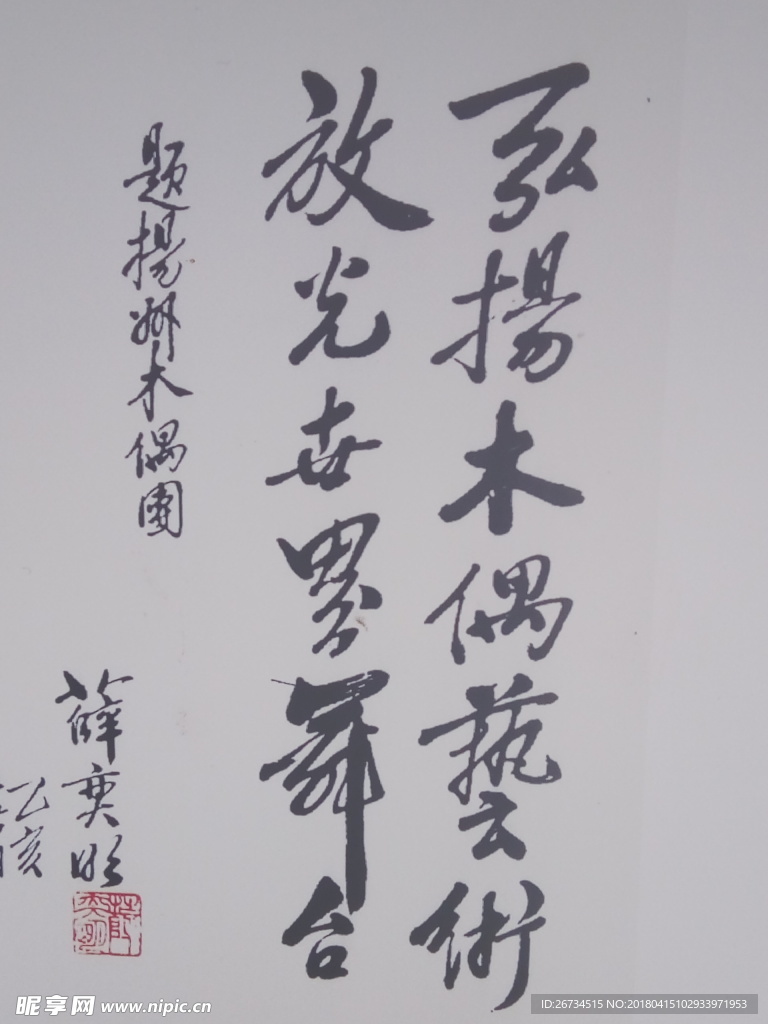 弘揚木偶藝術
放光世界舞台
題揚州木偶團
薛奕明
乙亥
昵享网 www.nipic.cn
ID:26734515 NO:20180415102933971953